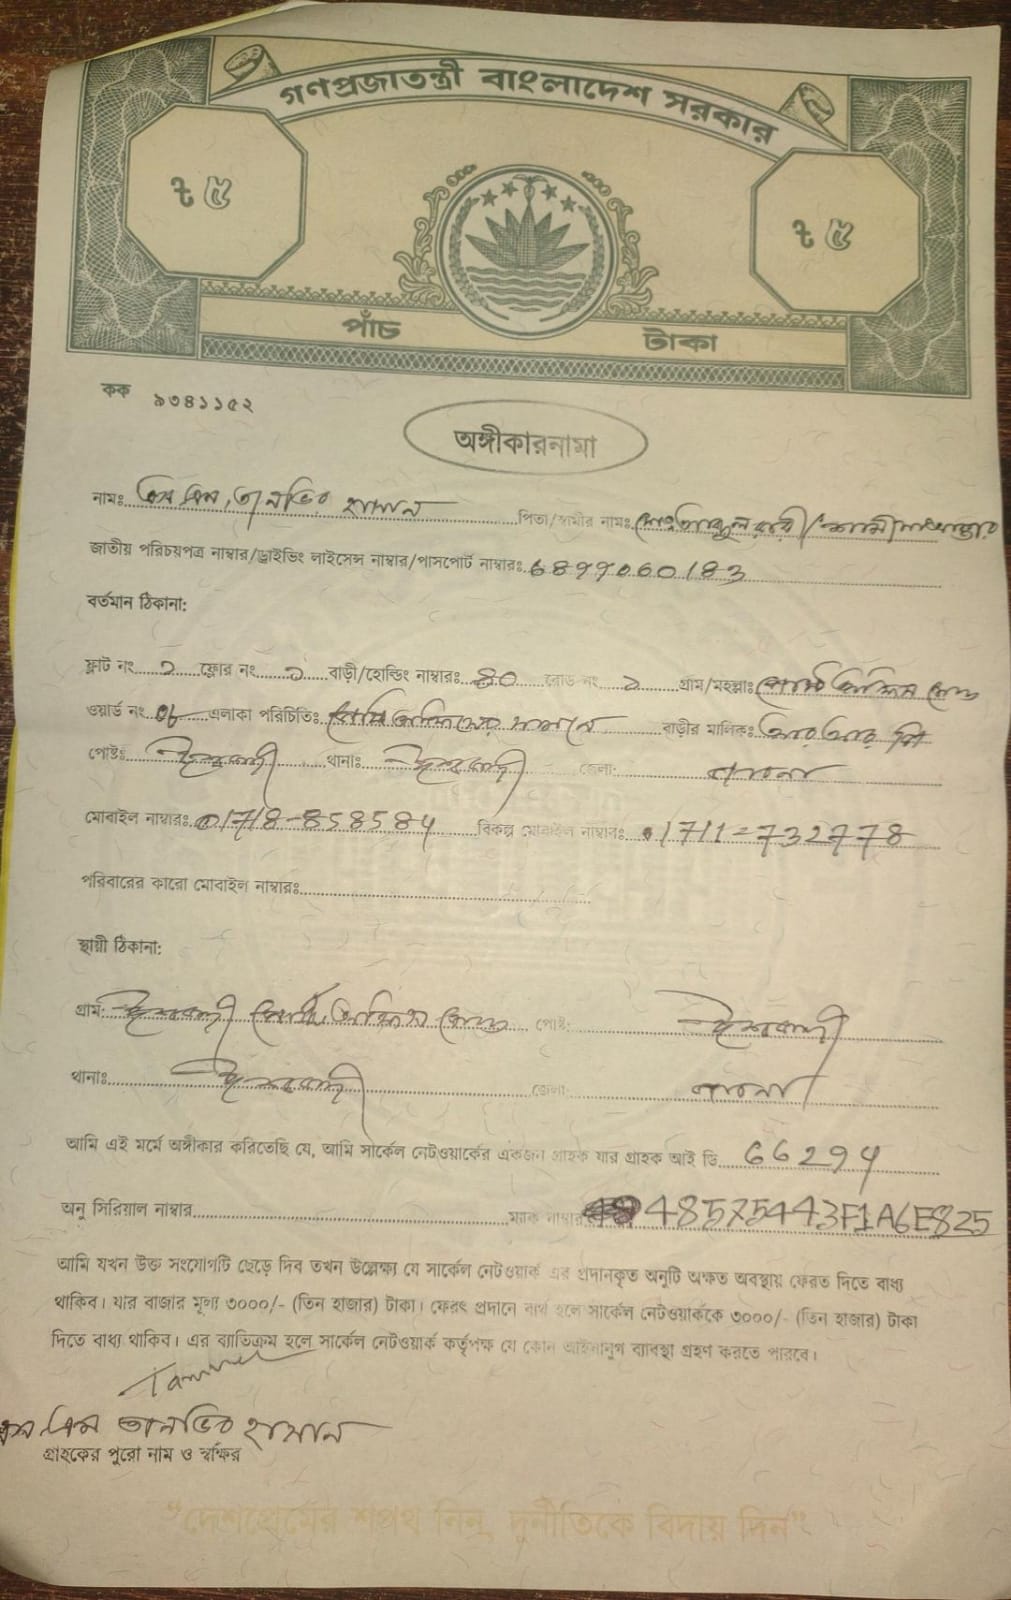 গণপ্রজাতন্ত্রী বাংলাদেশ সরকার
৳ ৫
৳ ৫
পাঁচ টাকা
কক ৯৩৪১১৫২
অঙ্গীকারনামা
নামঃ এস এম তানভির হাসান পিতা/স্বামীর নামঃ
জাতীয় পরিচয়পত্র নাম্বার/ড্রাইভিং লাইসেন্স নাম্বার/পাসপোর্ট নাম্বারঃ 6899060183
বর্তমান ঠিকানা:
ফ্লাট নং ১ ফ্লোর নং ১ বাড়ী/হোল্ডিং নাম্বারঃ রোড নং ১ গ্রাম/মহল্লাঃ পোস্ট অফিস রোড
ওয়ার্ড নং 06 এলাকা পরিচিতিঃ পোস্ট অফিসের সামনে বাড়ীর মালিকঃ
পোষ্টঃ ঈশ্বরদী থানাঃ ঈশ্বরদী জেলা: পাবনা
মোবাইল নাম্বারঃ 01718-858584 বিকল্প মোবাইল নাম্বারঃ 01711-732778
পরিবারের কারো মোবাইল নাম্বারঃ
স্থায়ী ঠিকানা:
গ্রাম: ঈশ্বরদী পোস্ট অফিস রোড পোষ্ট: ঈশ্বরদী
থানাঃ ঈশ্বরদী জেলা: পাবনা
আমি এই মর্মে অঙ্গীকার করিতেছি যে, আমি সার্কেল নেটওয়ার্কের একজন গ্রাহক যার গ্রাহক আই ডি 66294
অনু সিরিয়াল নাম্বার ম্যাক নাম্বার 48575443F1A6E825
আমি যখন উক্ত সংযোগটি ছেড়ে দিব তখন উল্লেক্ষ্য যে সার্কেল নেটওয়ার্ক এর প্রদানকৃত অনুটি অক্ষত অবস্থায় ফেরত দিতে বাধ্য
থাকিব। যার বাজার মূল্য ৩০০০/- (তিন হাজার) টাকা। ফেরৎ প্রদানে ব্যর্থ হলে সার্কেল নেটওয়ার্ককে ৩০০০/- (তিন হাজার) টাকা
দিতে বাধ্য থাকিব। এর ব্যতিক্রম হলে সার্কেল নেটওয়ার্ক কর্তৃপক্ষ যে কোন আইনানুগ ব্যাবস্থা গ্রহণ করতে পারবে।
এস এম তানভির হাসান
গ্রাহকের পুরো নাম ও স্বাক্ষর
"দেশপ্রেমের শপথ নিন, দুর্নীতিকে বিদায় দিন"